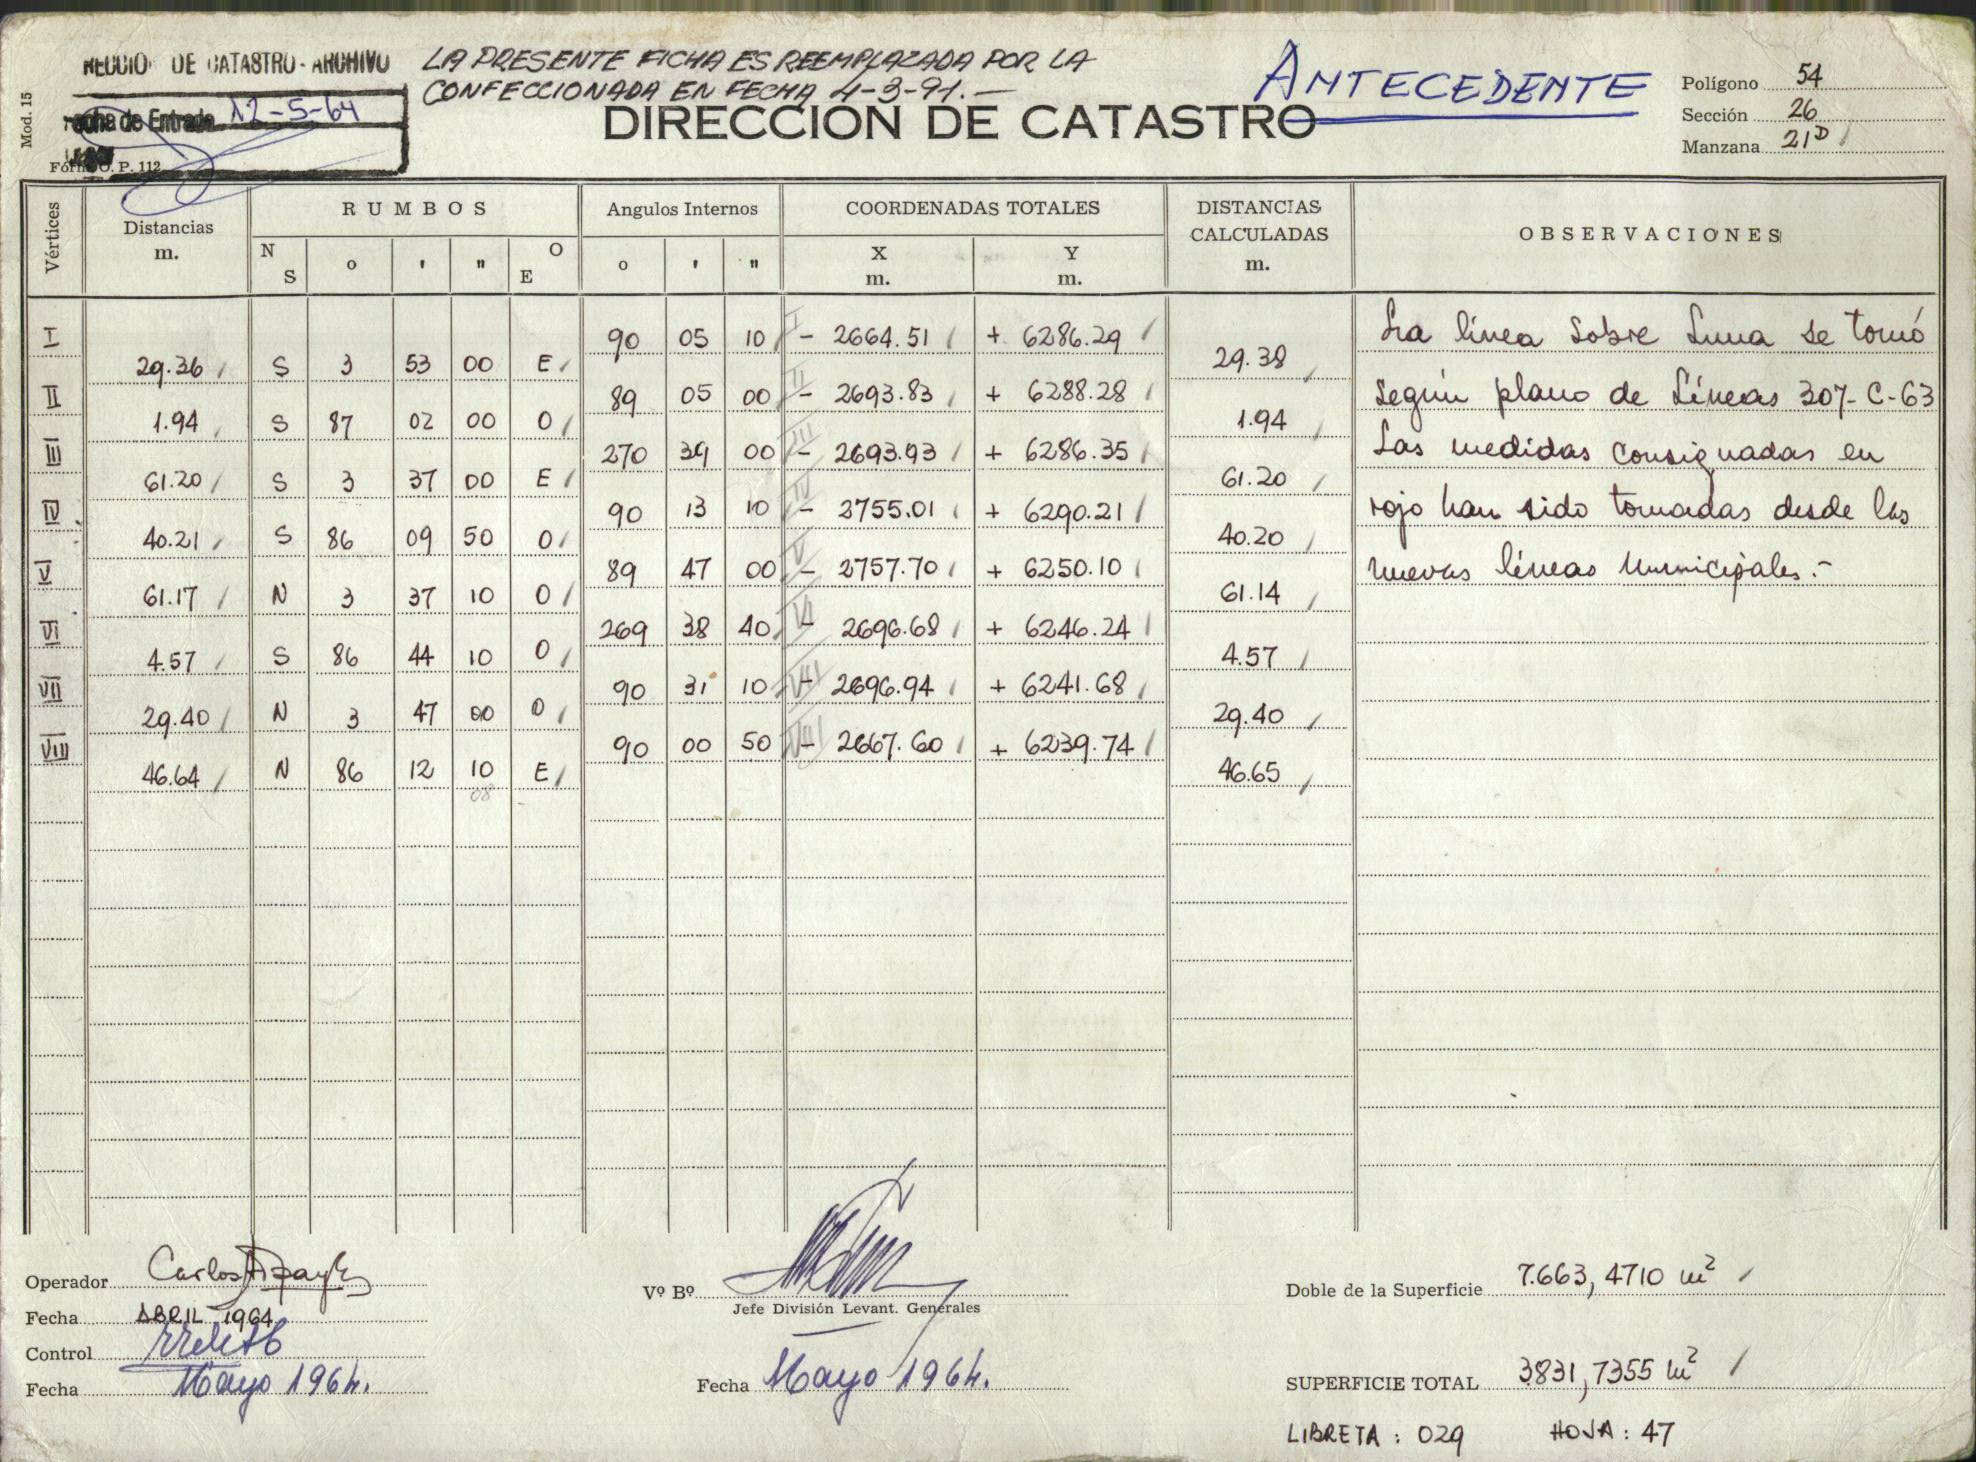 DE CATASTRO - ARCHIVO
LA PRESENTE FICHA ES REEMPLAZADA POR LA
CONFECCIONADA EN FECHA 4-3-91.-
ANTECEDENTE
Mod. 15
de Entrada 12-5-64
O. P. 112
DIRECCION DE CATASTRO
Polígono 54
Sección 26
Manzana 21D
Vértices
Distancias m.
RUMBOS
Angulos Internos
COORDENADAS TOTALES
DISTANCIAS CALCULADAS m.
OBSERVACIONES
N S ° ' " O E
° ' "
X m.
Y m.
I 90 05 10 - 2664.51 + 6286.29
29.36 S 3 53 00 E 29.38
II 89 05 00 - 2693.83 + 6288.28
1.94 S 87 02 00 O 1.94
III 270 39 00 - 2693.93 + 6286.35
61.20 S 3 37 00 E 61.20
IV 90 13 10 - 2755.01 + 6290.21
40.21 S 86 09 50 O 40.20
V 89 47 00 - 2757.70 + 6250.10
61.17 N 3 37 10 O 61.14
VI 269 38 40 - 2696.68 + 6246.24
4.57 S 86 44 10 O 4.57
VII 90 31 10 - 2696.94 + 6241.68
29.40 N 3 47 00 O 29.40
VIII 90 00 50 - 2667.60 + 6239.74
46.64 N 86 12 10 E 46.65
08
La línea sobre Luna se tomó
según plano de Líneas 307-C-63
Las medidas consignadas en
rojo han sido tomadas desde las
nuevas líneas Municipales.-
Operador Carlos
Fecha ABRIL 1964
Control
Fecha Mayo 1964.
Vº Bº
Jefe División Levant. Generales
Fecha Mayo 1964.
Doble de la Superficie 7.663,4710 m²
SUPERFICIE TOTAL 3.831,7355 m²
LIBRETA: 029 HOJA: 47